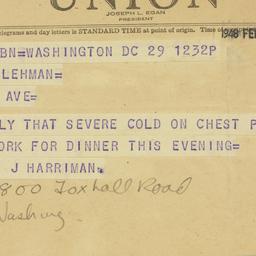 UNION
JOSEPH L. EGAN
PRESIDENT
egrams and day letters is STANDARD TIME at point of origin. Time of
1948 FE
BN=WASHINGTON DC 29 1232P
LEHMAN=
AVE=
LY THAT SEVERE COLD ON CHEST P
ORK FOR DINNER THIS EVENING=
J HARRIMAN.
800 Foxhall Road
Washing